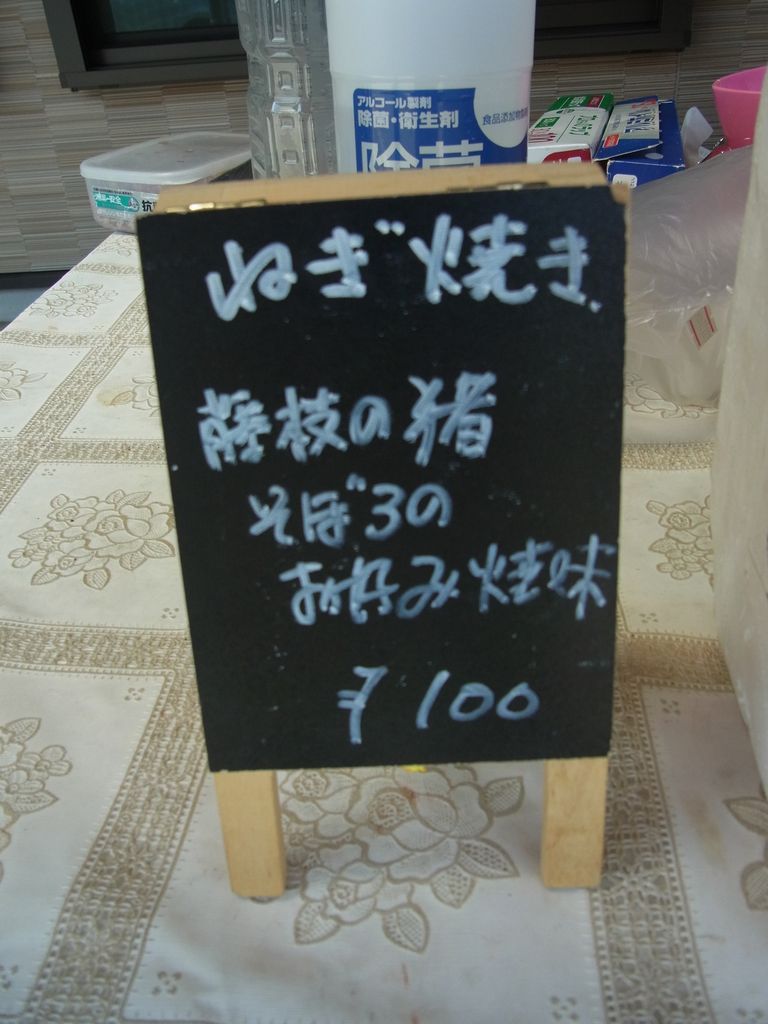 アルコール製剤
除菌・衛生剤
食品添加物
除菌
抗
ねぎ焼き
藤枝の猪
そば3の
お好み焼味
¥100